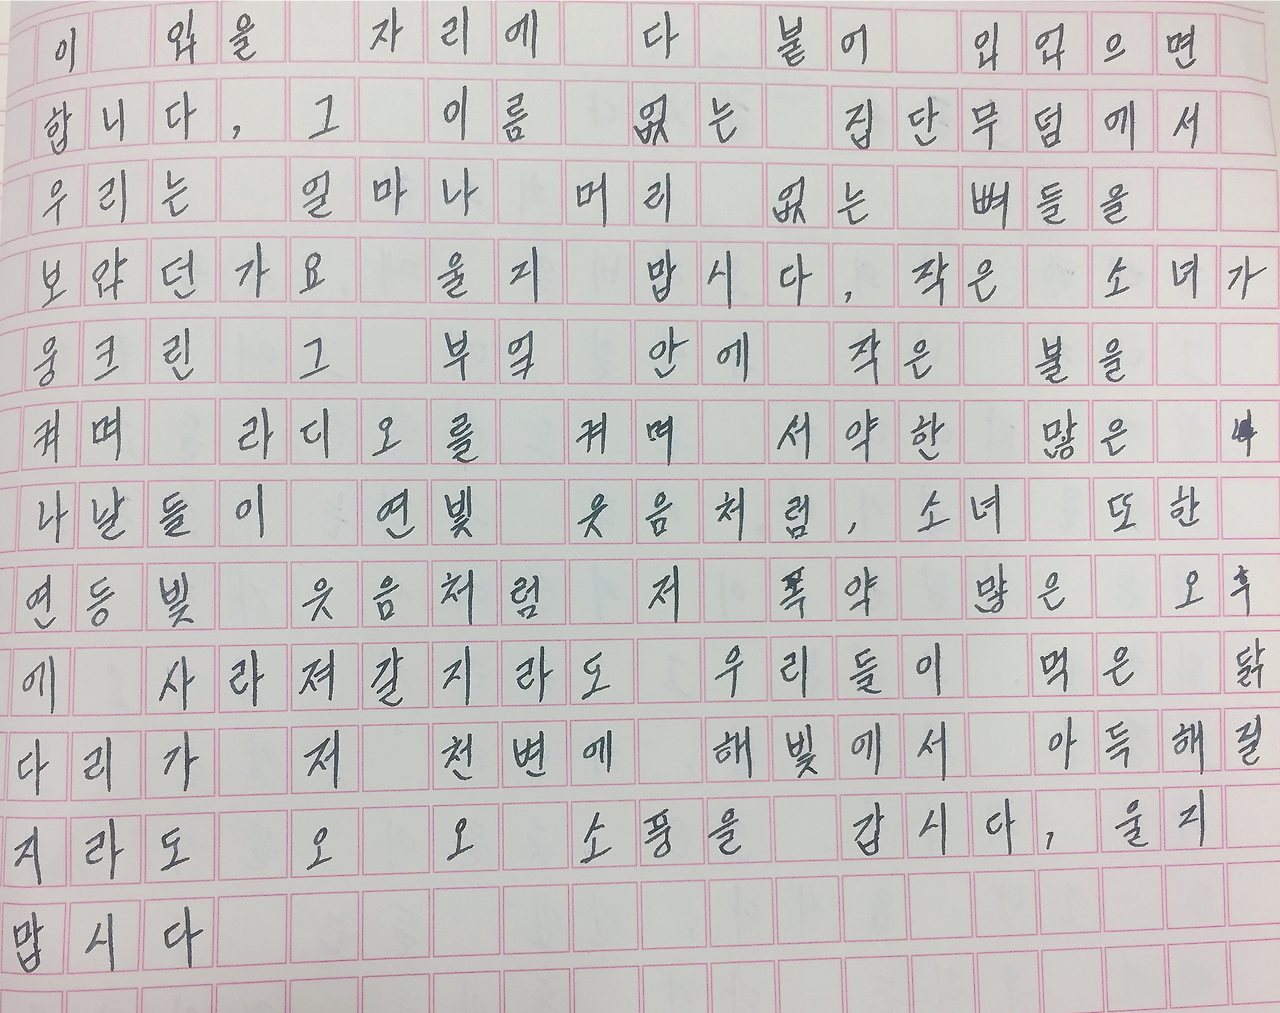 이 있을 자리에 다 붙어 있었으면
합니다, 그 이름 없는 집단무덤에서
우리는 얼마나 머리 없는 뼈들을
보았던가요 울지 맙시다, 작은 소녀가
웅크린 그 부엌 안에 작은 불을
켜며 라디오를 켜며 서약한 많은
나날들이 연빛 웃음처럼, 소녀 또한
연등빛 웃음처럼 저 폭약 많은 오후
에 사라져갈지라도 우리들이 먹은 닭
다리가 저 천변에 해빛에서 아득해질
지라도 오 오 소풍을 갑시다, 울지
맙시다